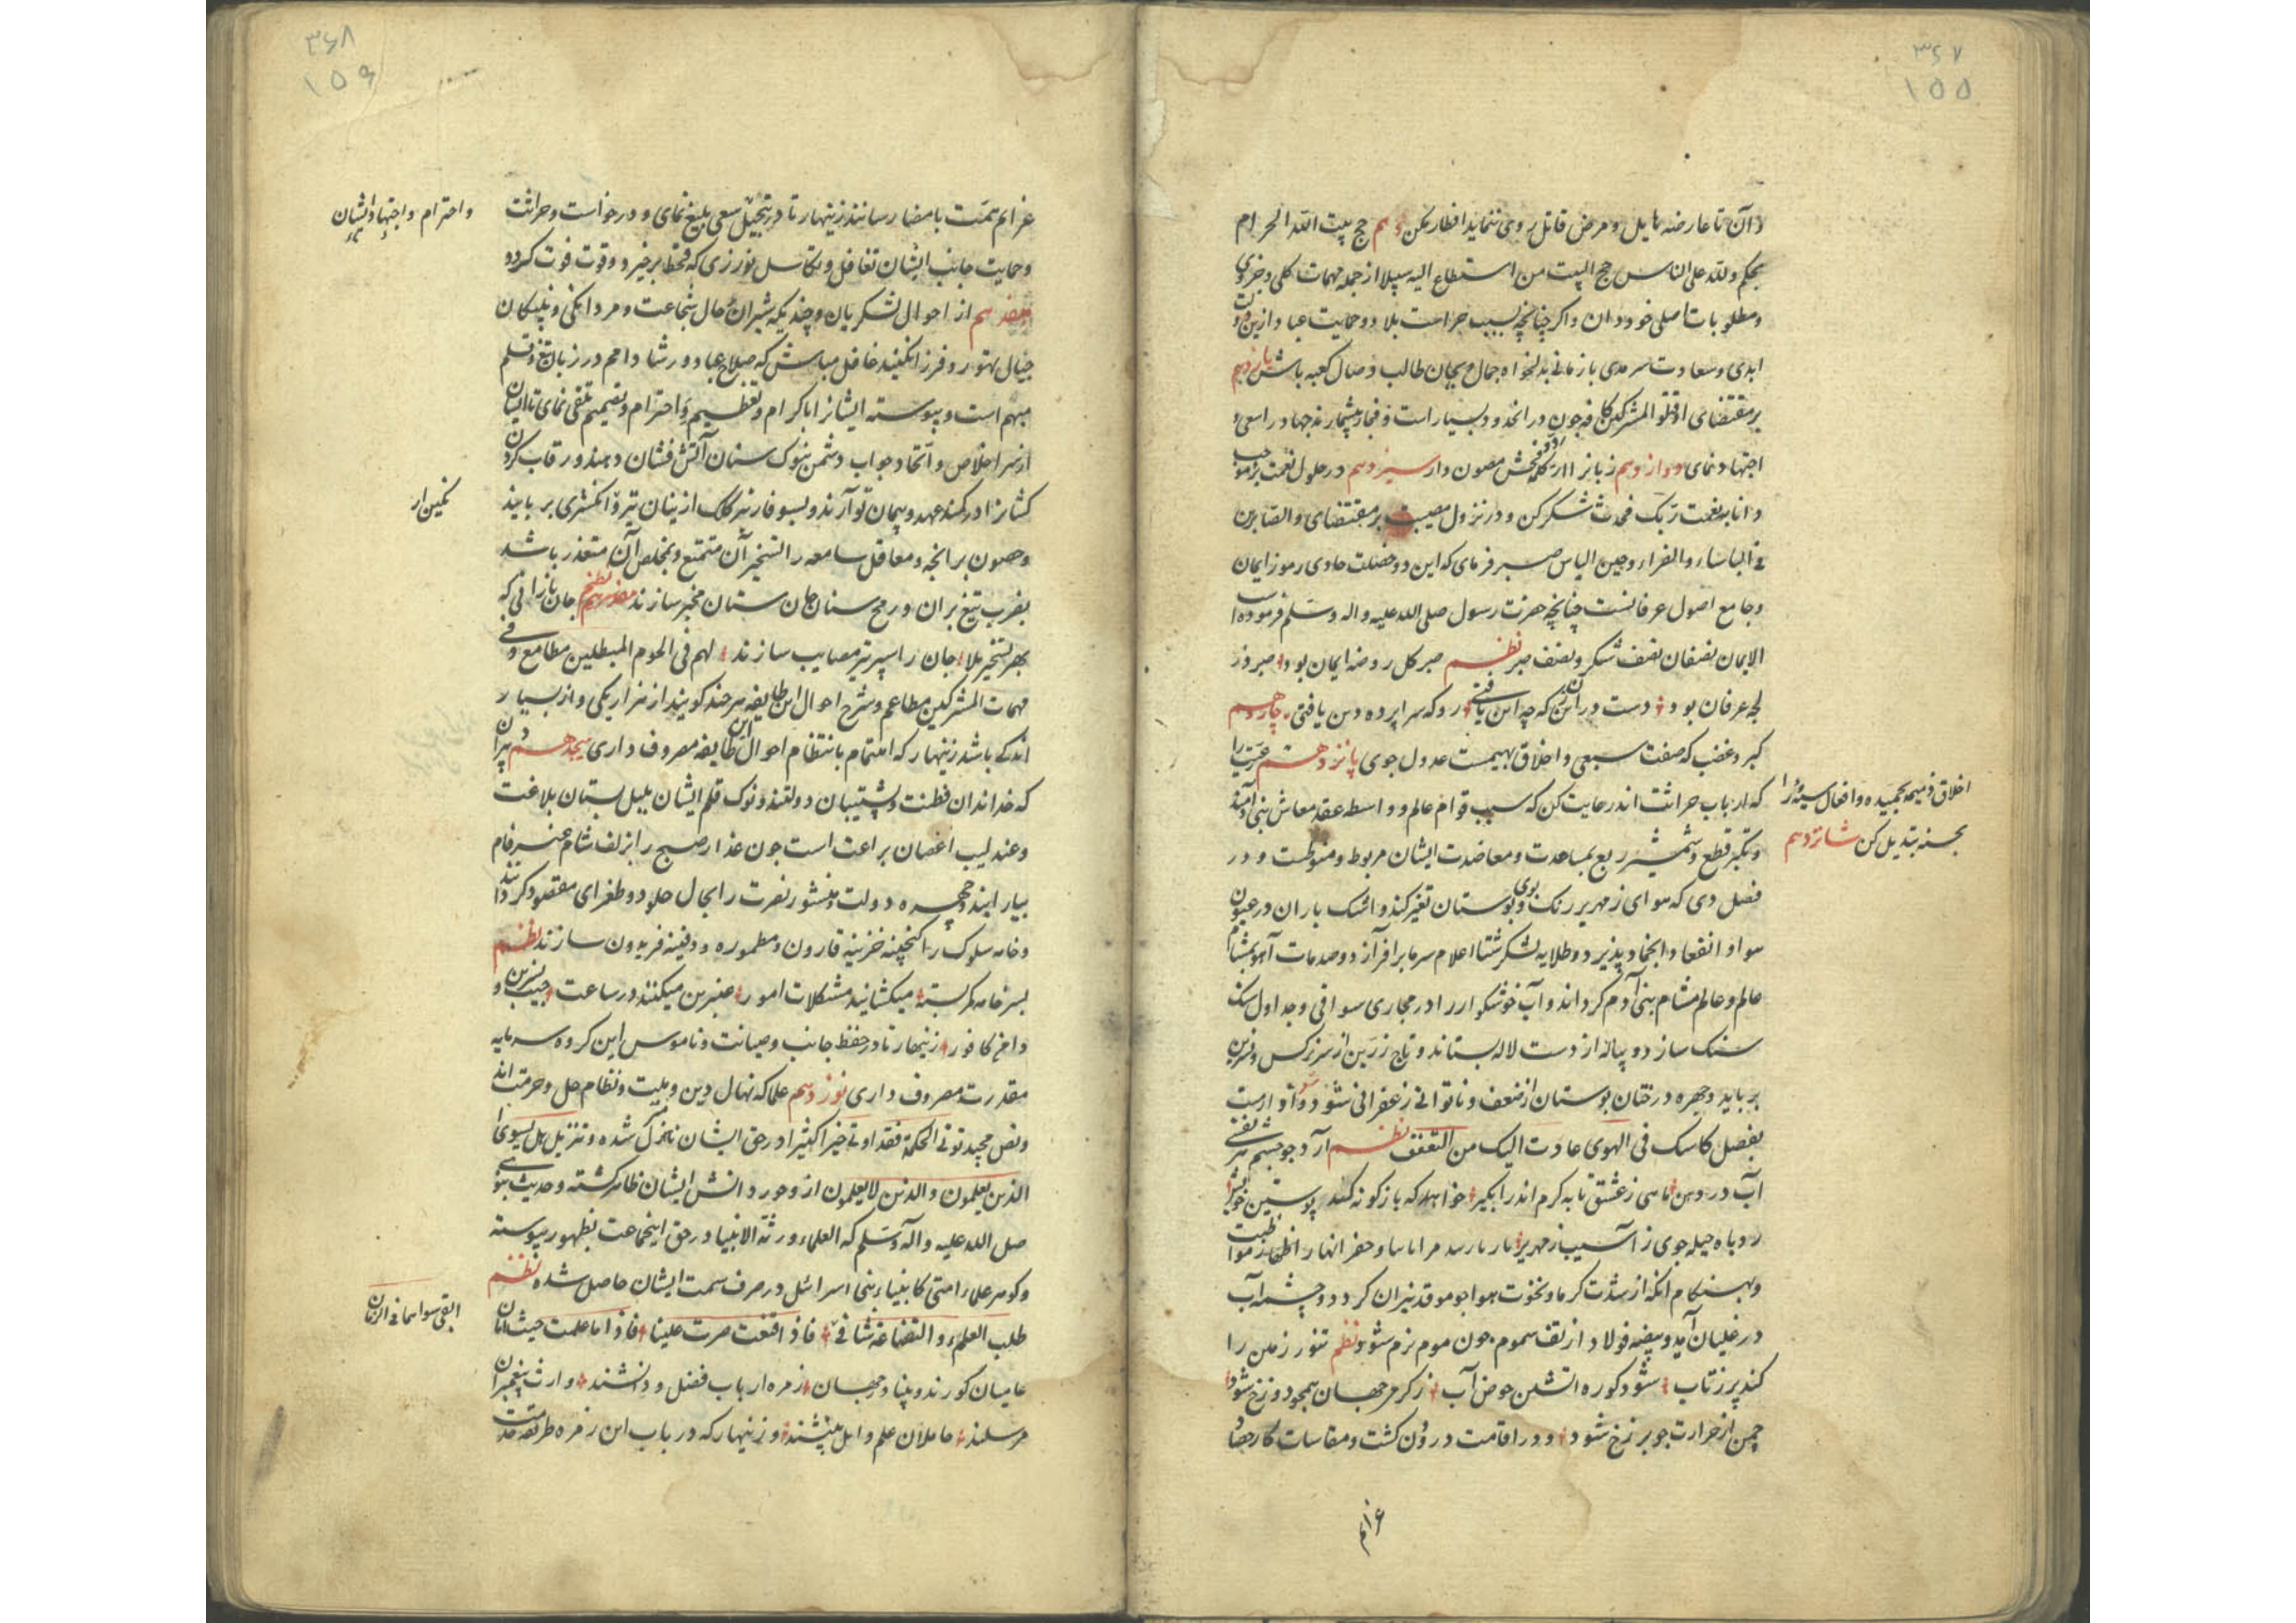 ۳۶۷
۱۵۵
آن تا عارضه هایل و مرض قاتل روی ننماید افطار مکن دهم حج بیت الله الحرام
بحکم ولله علی الناس حج البیت من استطاع الیه سبیلا از جمله مهمات کلی و جزوی
و مطلوبات اصلی خود دان و اکر چنانچه بسبب حراست بلاد و حمایت عباد ازین دولت
ابدی و سعادت سرمدی بازمانی بدلخواه جمال بیجان طالب وصال کعبه باش یازدهم
بر مقتضای اقتلوا المشرکین کافه چون در آنحدود بسیار است و فجار بیشمارند جهاد را سعی و
اجتهاد نمای دوازدهم زبانرا از کلمه فحش مصون دار سیزدهم در حلول نعمت بر موجب
و اما بنعمت ربک فحدث شکر کن و در نزول مصیبت بر مقتضای والصابرین
فی الباساء والضراء وحین الباس صبر فرمای که این دو خصلت حاوی رموز ایمان
و جامع اصول عرفانست چنانچه حضرت رسول صلی الله علیه واله وسلم فرموده است
الایمان نصفان نصف شکر ونصف صبر نظم صبر کل روضه ایمان بود صبر در
لجه عرفان بود دست در آن زن که چو این یافتی رو که سراپرده دین یافتی چهاردهم
کبر و غضب که صفت سبعی و اخلاق بهیمست عدول جوی پانزدهم رعیت را
که ارباب حراثت اند رعایت کن که سبب قوام عالم و واسطه عقد معاش بنی آدمند
اخلاق ذمیمه بحمیده و افعال سیئه را
بحسنه تبدیل کن شانزدهم
و تکبر قطع و شمشیر ربع بمساعدت و معاضدت ایشان مربوط و منوطست و در
فصل دی که هوای زمهریر رنک و بوی بوستان تغیر کند و اشک باران در عیون
هوا و انعقاد و انجماد پذیرد و طلایه لشکر شتا اعلام سرما برافرازد و صدمات
عالم و عالم مشام بنی آدم کرداند و آب خوشکوار را در مجاری سواقی و جداول سنک
سنک سازد و پیاله از دست لاله بستاند و تاج زرین از سر نرکس و نسرین
برباید و چهره درختان بوستان از ضعف و ناتوانی زعفرانی شود
بفصل کاسک فی الهوی عادت الیک من التعفف نظم آرد چو چشم
آب در دهن ماهی ز عشق تابه کرم اندر آبگیر خواهد که باژکونه کند پوستین خویش
روباه حیله جوی ز آسیب زمهریر
و بهنکام آنکه از شدت کرما و نخوت هوا جو موقد نیران کردد و چشمه آب
در غلیان آید و بیضه فولاد از تف سموم چون موم نرم شود نظم تنور زمین را
کند پر ز تاب شود کوره آتشین حوض آب ز کرمی جهان همچو دوزخ شود
چمن از حرارت چو برزخ شود و در اقامت درودن کشت و مقاسات کار حصاد
عزایم
۳۶۸
۱۵۶
عزایم همت بامضا رسانند زینهار تا در تبجیل سعی بلیغ نمای و در خواست و حراثت
و احترام و اجتهاد ایشان
و حمایت جانب ایشان تغافل و تکاسل نورزی که قحط برخیزد و قوت فوت کردد
هفدهم از احوال لشکریان و چندیکه شیران حال شجاعت و مردانکی و پلنکان
جبال تهور و فرزانکیند غافل مباش که صلاح عباد و رشاد امم در زبان تیغ و قلم
مبهم است و پیوسته ایشانرا باکرام و تعظیم و احترام و تفخیم تلقی نمای تا ایشان
از سر اخلاص و اتحاد جواب دشمن بنوک سنان آتش فشان دهند و رقاب کردن
کشانرا در کمند عهد و پیمان تو آرند و بسوفار تیر کلک از بنان تیره انکشتری بربایند
نکین از
و حصون برانجه و معاقل سامعه را تسخیر آن متمتع و تخلص آن متعذر باشد
بضرب تیغ بران و رمح سنان جهان ستان مسخر سازند نظم جان بازانی که
بهر تسخیر بلاد جان را سپر تیر مصایب سازند لهم فی لحوم المبطلین مطامع وفی
مهمات المشرکین مطاعم و شرح احوال این طایفه هر چند کویند از هزار یکی و از بسیار
اندکی باشد زینهار که اهتمام بانتظام احوال این طایفه مصروف داری هیجدهم دبیران
که خداوندان فطنت و پشتیبان دولتند و نوک قلم ایشان بلبل بستان بلاغت
و عندلیب اغصان براعت است چون عذار صبح را بزلف شام عنبرفام
بیارایند و چهره دولت و منشور نصرت را بجال خلود و طغرای مقصود کردانند
و خانه سلوک را کنجینه خزینه قارون و مطموره و دفینه فریدون سازند نظم
بسر خامه کمر بسته میکشایند مشکلات امور عنبرین میکنند در ساعت جیب نسرین و
دامن کافور زینهار تا در حفظ جانب و صیانت و ناموس این کروه سرمایه
مقدرت مصروف داری نوزدهم علما که نهال دین و ملت و نظام حل و حرمت اند
و نص مجید توتی الحکمه فقد اوتی خیرا کثیرا در حق ایشان نازل شده و تنزیل هل یستوی
الذین یعلمون والذین لایعلمون از وجود دانش ایشان ظاهر کشته و حدیث نبوی
صلی الله علیه وآله وسلم که العلماء ورثة الانبیا در حق اینجماعت بظهور پیوسته
و کوهر علماء امتی کانبیاء بنی اسرائیل در صرف سمت ایشان حاصل شده نظم
طلب العلم و القناعة شانی فاذا قنعت صرت علینا فاذا ما علمت حیث
ابقی سواهما فی الزمان
عامیان کورند و بینا در جهان زمره ارباب فضل و دانشند وارث پیغمبران
مرسلند حاملان علم و اهل بینشند و زینهار که در باب این زمره طریقه